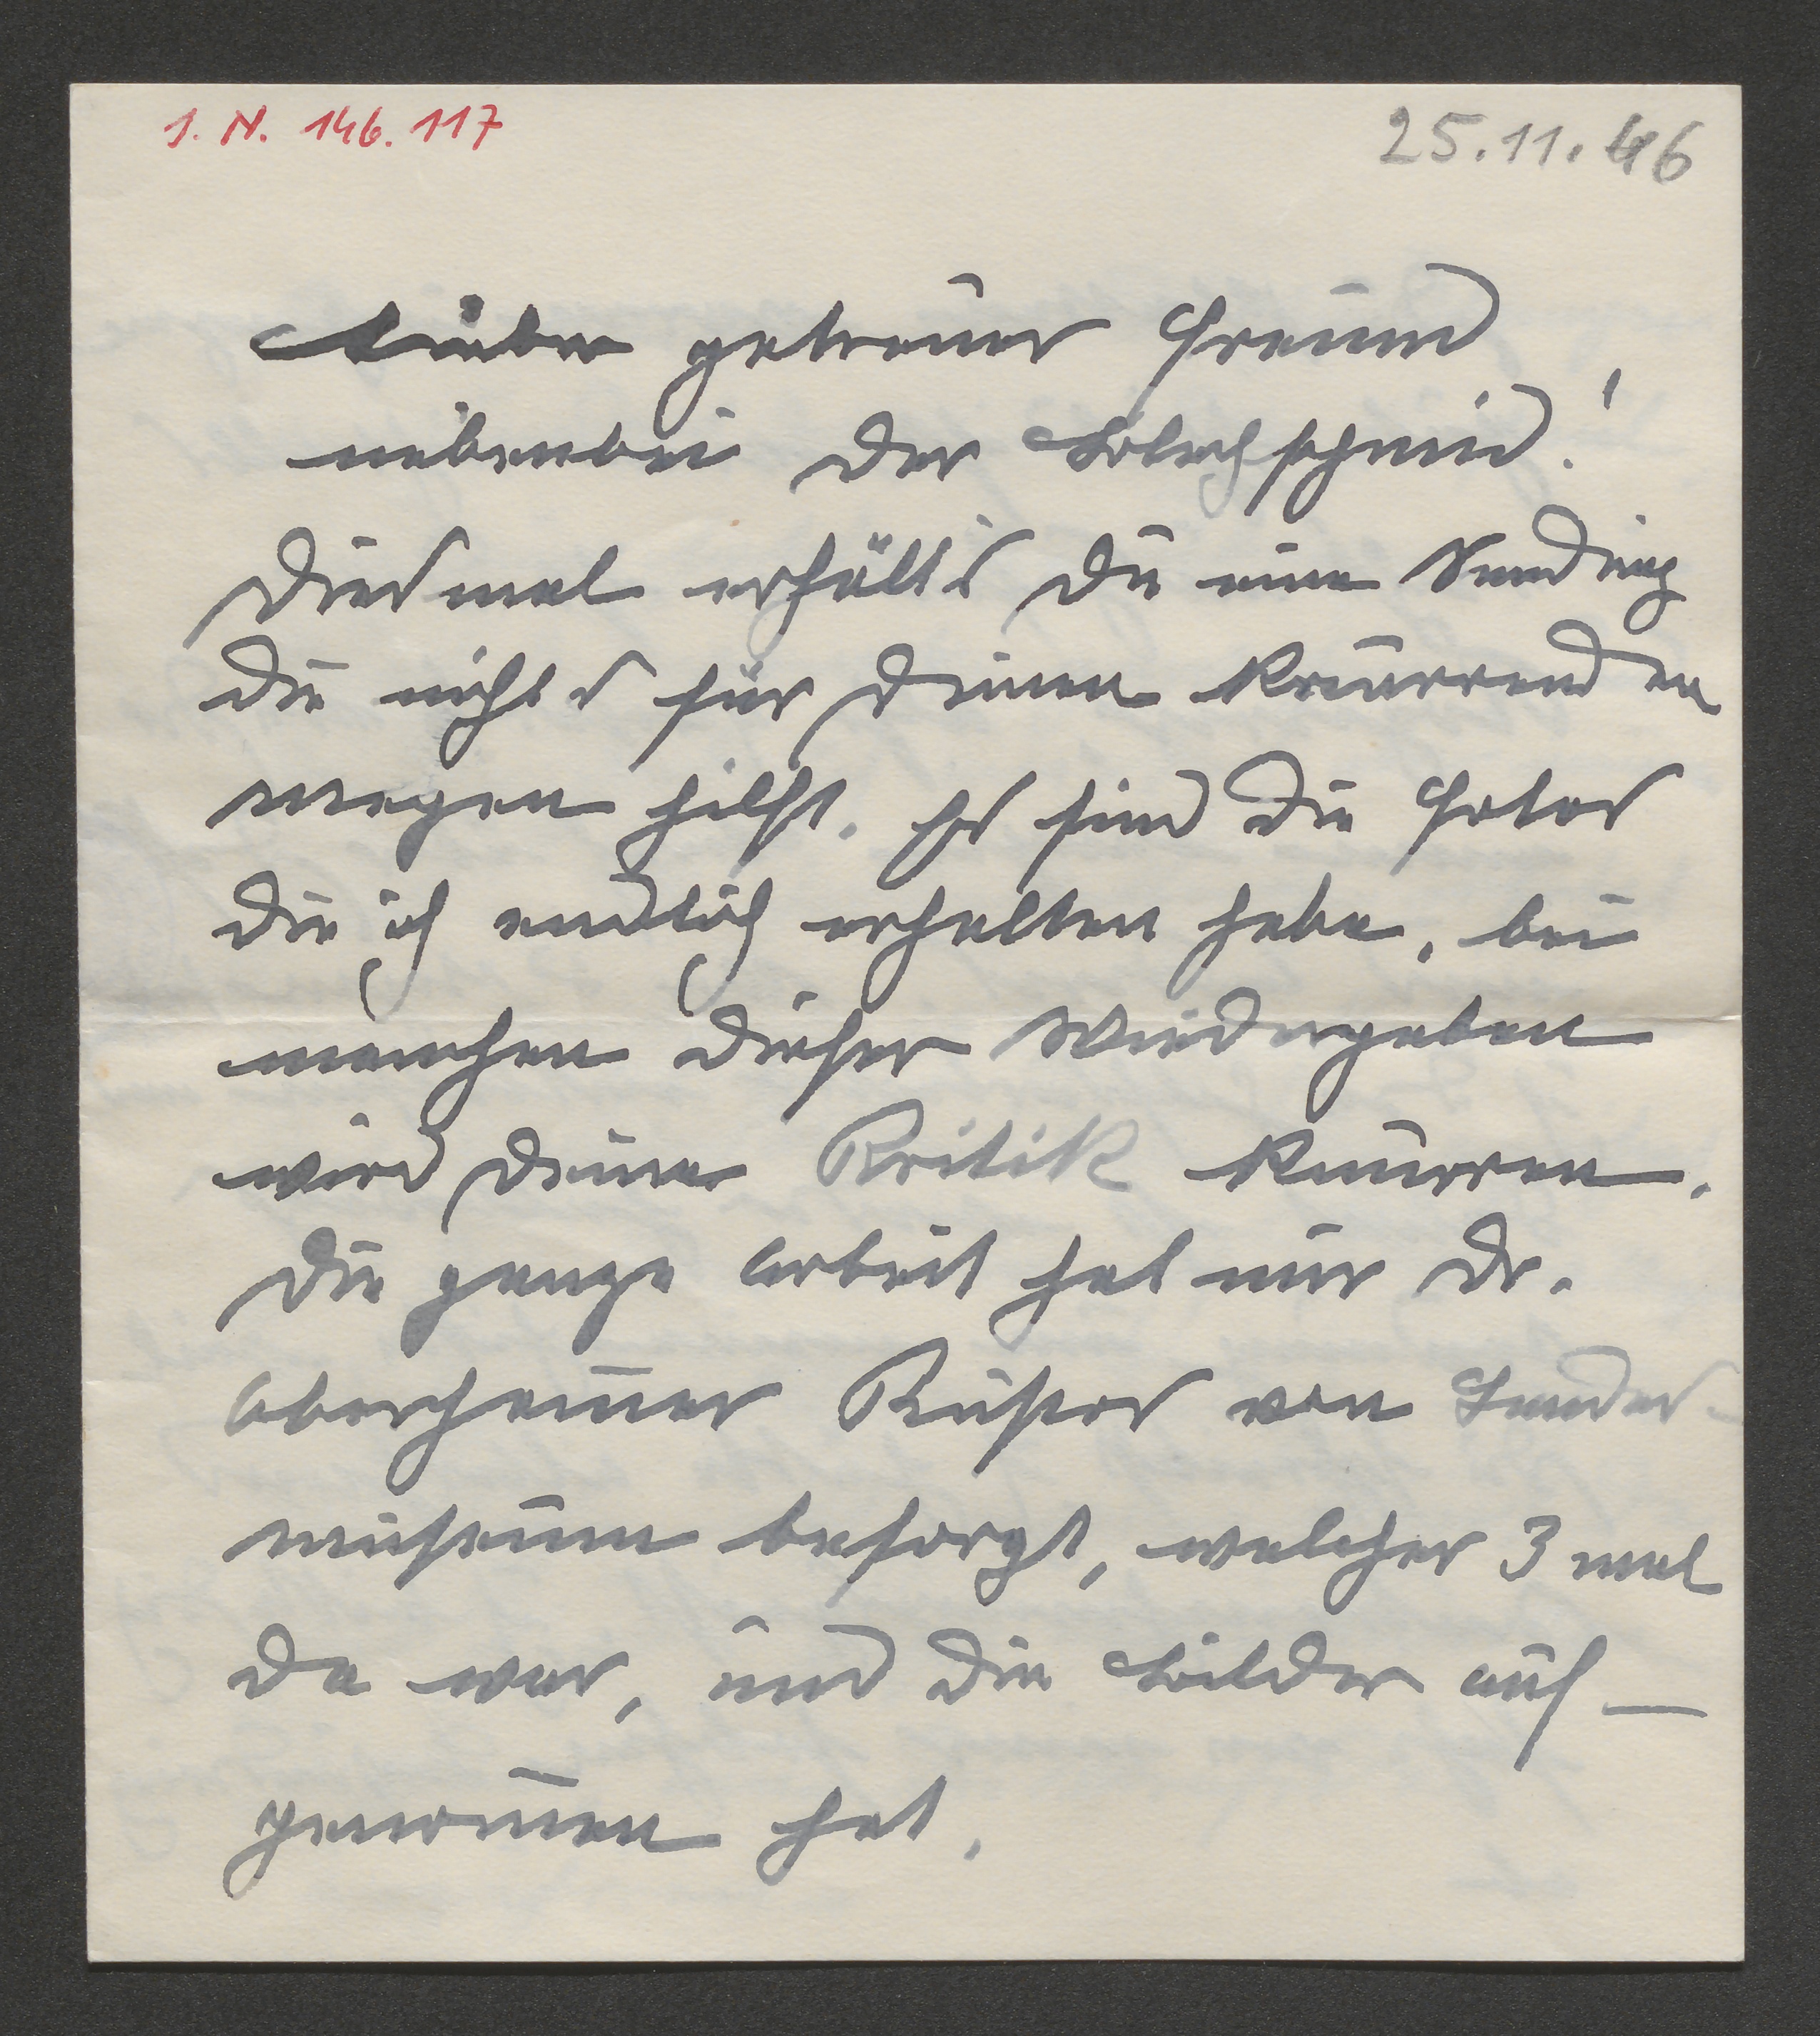 I. N. 146.117
25.11.46
Lieber getreuer Freund
nebenbei der Blechschmid!
Diesmal erhälts Du eine Sendung
die nichts für deinen knurrenden
magen hilft. Es sind die Fotos
die ich endlich erhalten habe, bei
manchen dieser Wiedergaben
wird deine Kritik knurren.
Die ganze Arbeit hat mir Dr.
Oberhammer Kustos von Landes-
museum besorgt, welcher 3 mal
da war, und die Bilder auf-
genommen hat.